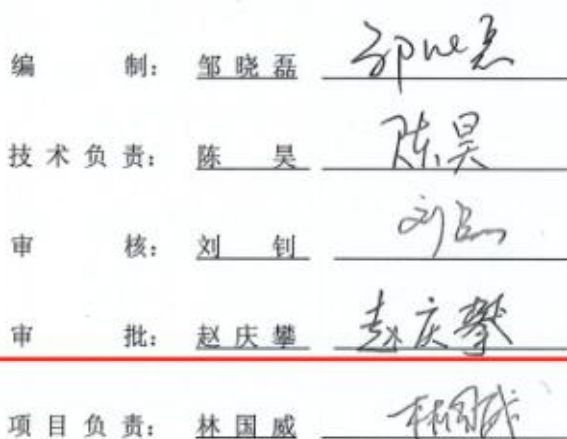 编 制: 邹 晓 磊 邹晓磊
技 术 负 责: 陈 昊 陈昊
审 核: 刘 钊 刘钊
审 批: 赵 庆 攀 赵庆攀
项 目 负 责: 林 国 威 林国威